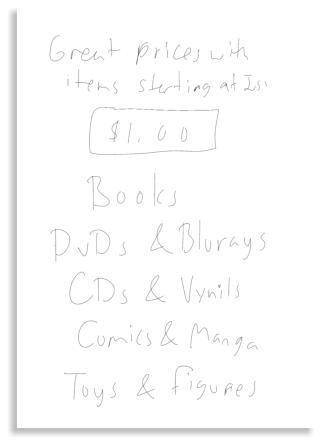 Great prices with
items starting at Just
$1.00
Books
DVDs & Blurays
CDs & Vynils
Comics & Manga
Toys & figures